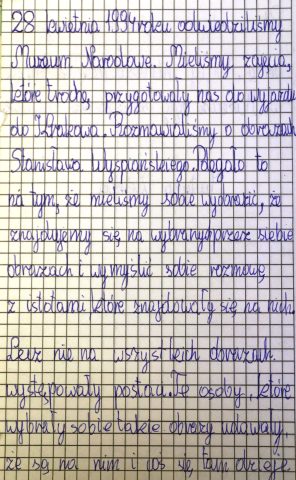 28 kwietnia 1994 roku odwiedziliśmy
Muzeum Narodowe. Mieliśmy zajęcia,
które trochę przygotowały nas do wyjazdu
do Krakowa. Rozmawialiśmy o obrazach
Stanisława Wyspiańskiego. Polegało to
na tym, że mieliśmy sobie wyobrazić, że
znajdujemy się na wybranych przez siebie
obrazach i wymyślić sobie rozmowę
z istotami które znajdowały się na nich.
Lecz nie na wszystkich obrazach
występowały postaci. Te osoby, które
wybrały sobie takie obrazy udawały,
że są na nim i coś się tam dzieje.